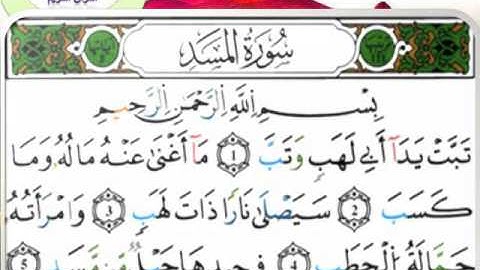 القرآن الكريم
سُورَةُ المَسَدِ
بِسْمِ اللَّهِ الرَّحْمَنِ الرَّحِيمِ
تَبَّتْ يَدَا أَبِي لَهَبٍ وَتَبَّ ١ مَا أَغْنَىٰ عَنْهُ مَالُهُ وَمَا
كَسَبَ ٢ سَيَصْلَىٰ نَارًا ذَاتَ لَهَبٍ ٣ وَامْرَأَتُهُ
حَمَّالَةَ الْحَطَبِ ٤ فِي جِيدِهَا حَبْلٌ مِّن مَّسَدٍ ٥